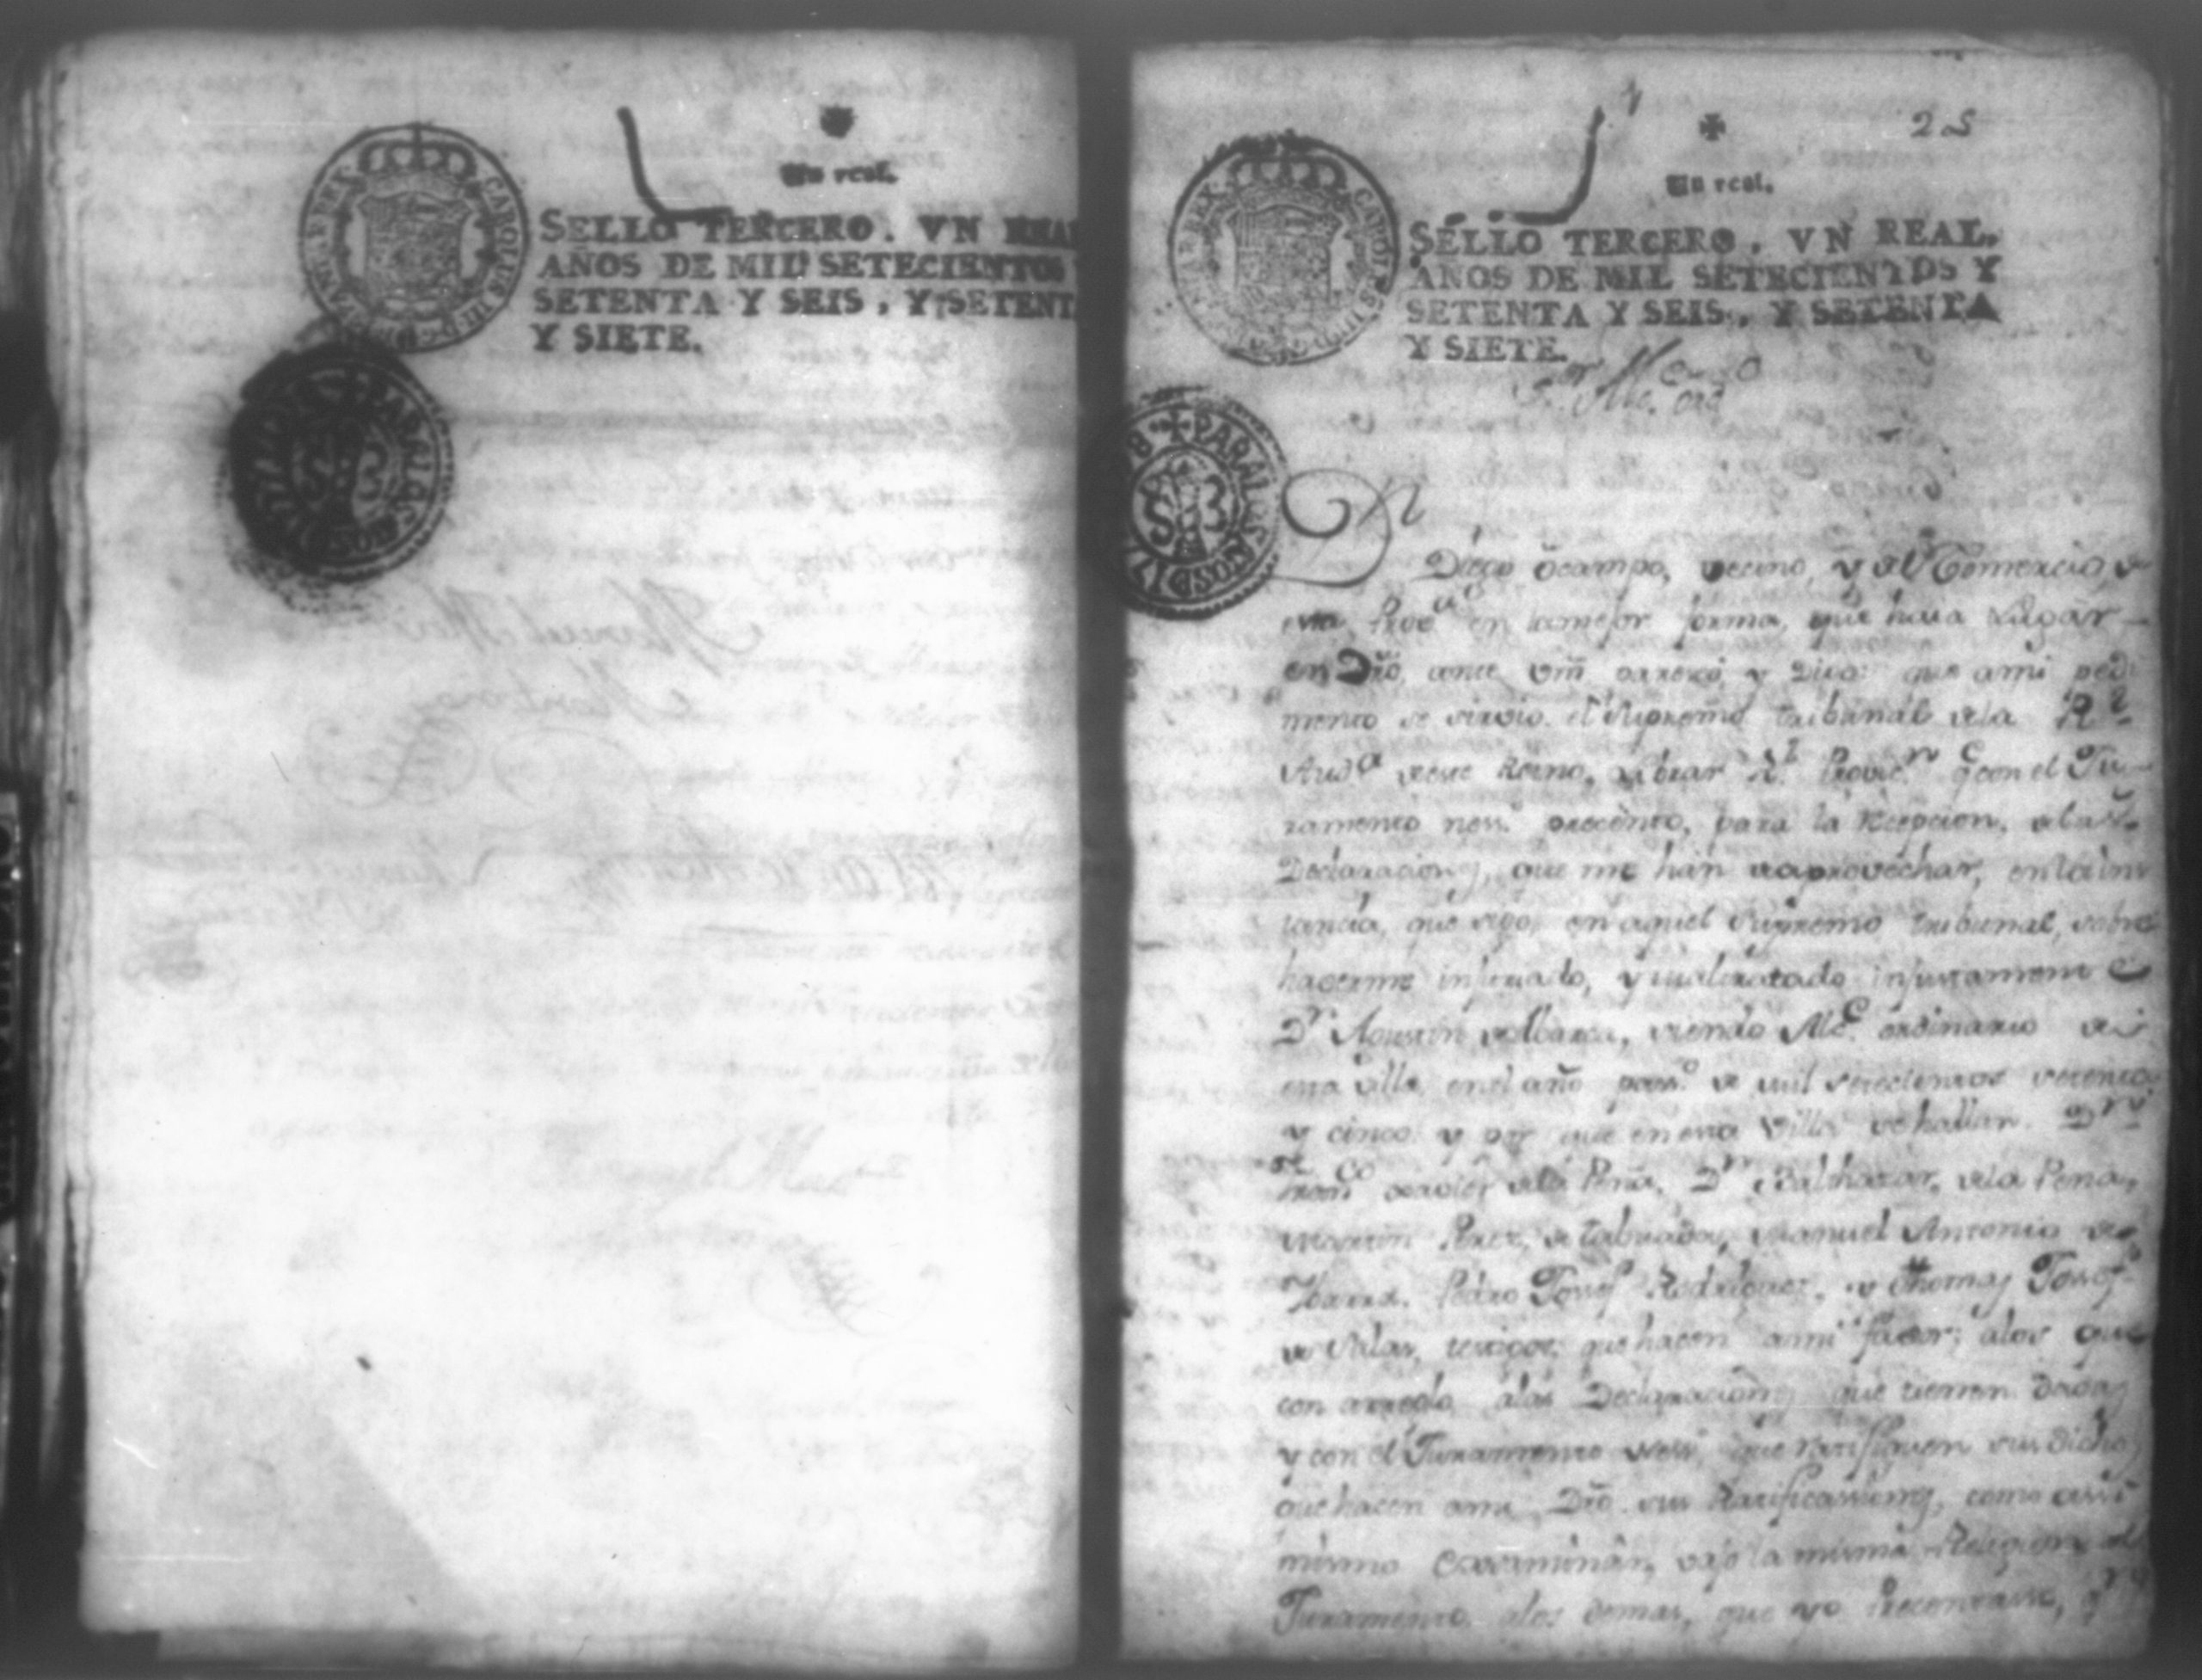 Un real.
SELLO TERCERO. VN REAL
AÑOS DE MIL SETECIENTOS
SETENTA Y SEIS, Y SETENT
Y SIETE.
CAROLUS III D. G. HISPANIAR. REX
PARA LOS AÑOS D
S 3
25
Un real.
SELLO TERCERO. VN REAL.
AÑOS DE MIL SETECIENTOS Y
SETENTA Y SEIS, Y SETENTA
Y SIETE.
CAROLUS III D. G. HISPANIAR. REX
PARA LOS AÑOS D 177 8
S 3
Sor. Alc. ord
Dn
Diego Ocampo, vecino, y del Comercio, de
esta Prova en la mejor forma, que haya lugar
en Dro, ante Vm paresco, y Digo: que a mi pedi
mento se sirvio el Supremo tribunal dela Rl.
Auda. de este Reino, librar Rl. Provicn. q con el Ju
ramento ness. para la recepcion, delas
Declaraciones, que me han de aprovechar, en la ins
tancia, que sigo, en aquel Supremo tribunal, sobre
haverme injuriado, y maltratado injustamente
Dn. Agustin siendo Alce. ordinario de
esta villa, en el año passo. de mil setecientos setenta
y cinco y por que en esta Villa se hallan Dn
Franco. Xavier dela Peña, Dn. Balthazar, dela Pena,
Martin Perez, de Taboada, Manuel Antonio de
Ybarra, Pedro Josef Rodriguez, y Thomas Josef
de Salas, testigos, que hacen a mi favor; alos que
con arreglo, alas Declaraciones que tienen dadas
y con el Juramento ness. que ratifiquen sus dichos
que hacen a mi Dro. sus Ratificasiones, como assi
mismo examinar, vajo la misma Religion del
Juramento alos demas, que yo presentasse,